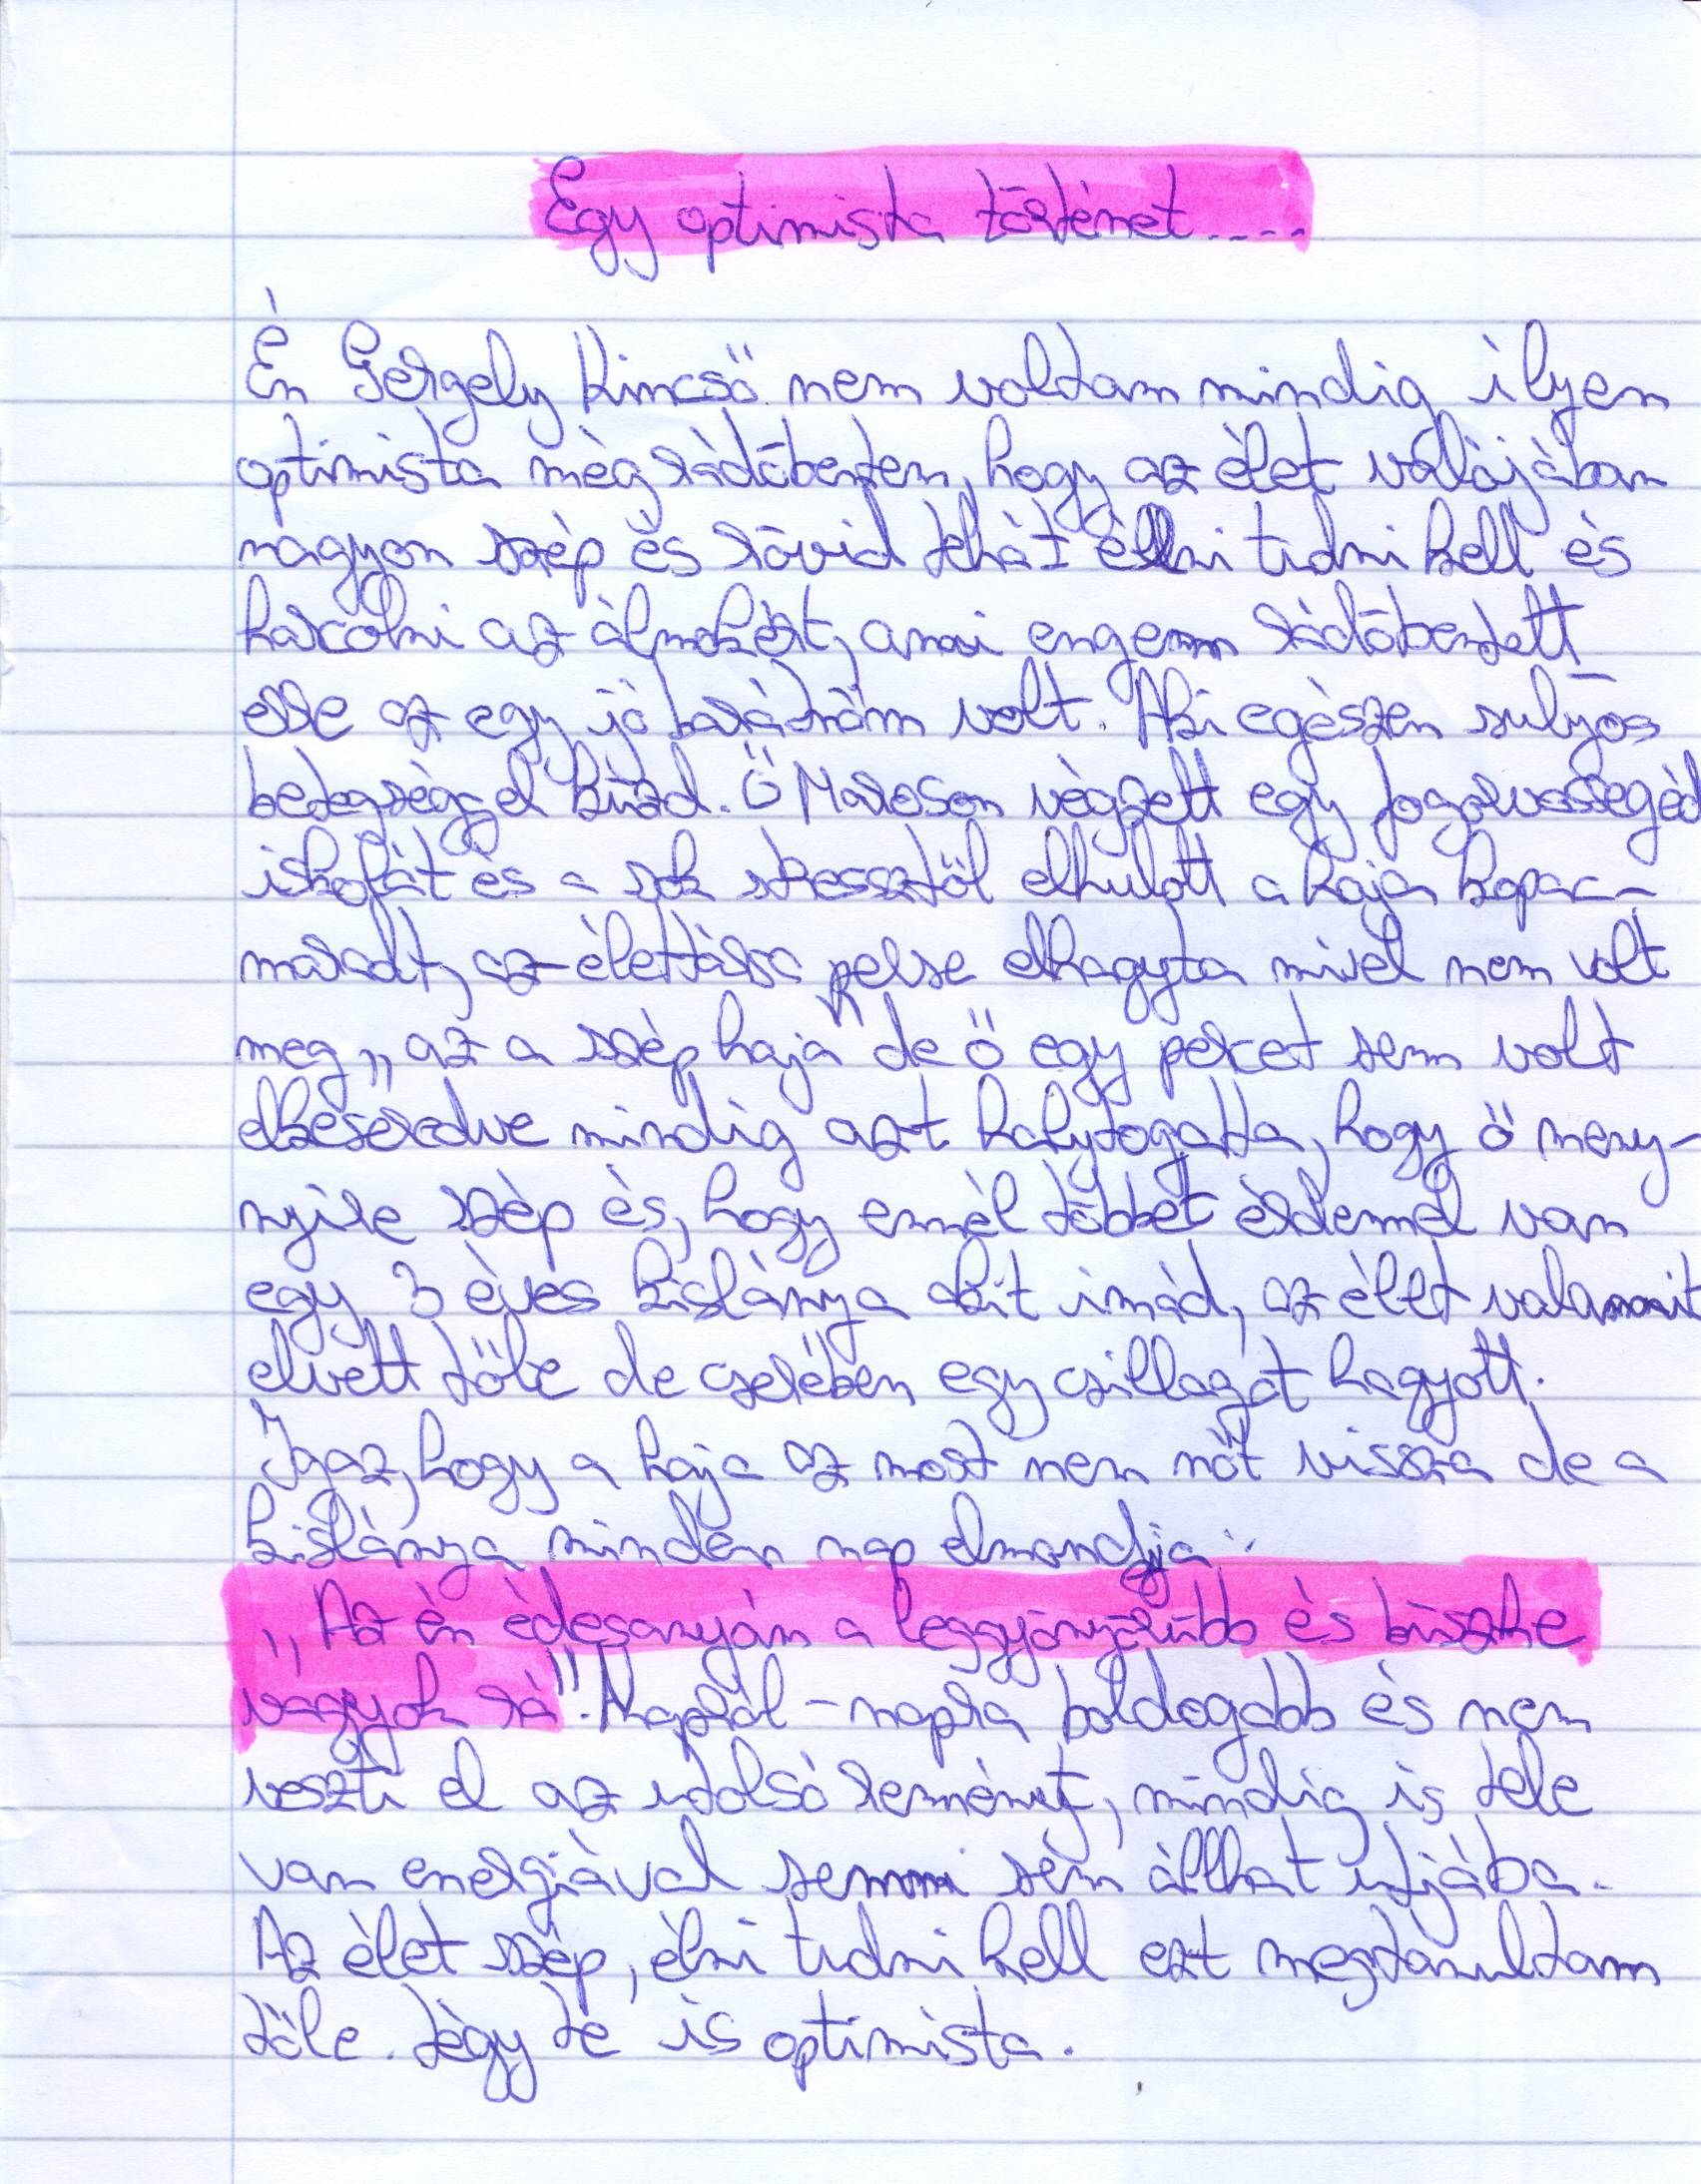 Egy optimista történet....
Én Gergely Kincső nem voltam mindig ilyen
optimista még rádöbentem, hogy az élet valójában
nagyon szép és rövid tehát élni tudni kell és
harcolni az álmokért, ami engem rádöbentett
erre az egy jó barátnöm volt. Aki egészen sulyos
betegséggel küzd. Ö Maroson végzett egy fogorvossegéd
iskolát és a sok stressztöl elhulott a haja kopac-
maradt, az élettársa persze elhagyta mivel nem volt
meg „az a szép haja" de ö egy percet sem volt
elkeseredve mindig azt halytogatta, hogy ö meny-
nyire szép és, hogy ennél többet érdemel van
egy 3 éves kislánya akit imád, az élet valamit
elvett töle de cserében egy csillagot hagyott.
Igaz, hogy a haja az most nem nöt vissza de a
kislánya minden nap elmondja:
„Az én édesanyám a leggyönyörübb és büszke
vagyok rá". Napról-napra boldogabb és nem
veszti el az utolsó reményt, mindig is tele
van energiával semmi sem állhat utjába.
Az élet szép, élni tudni kell ezt megtanultam
töle. Légy te is optimista.